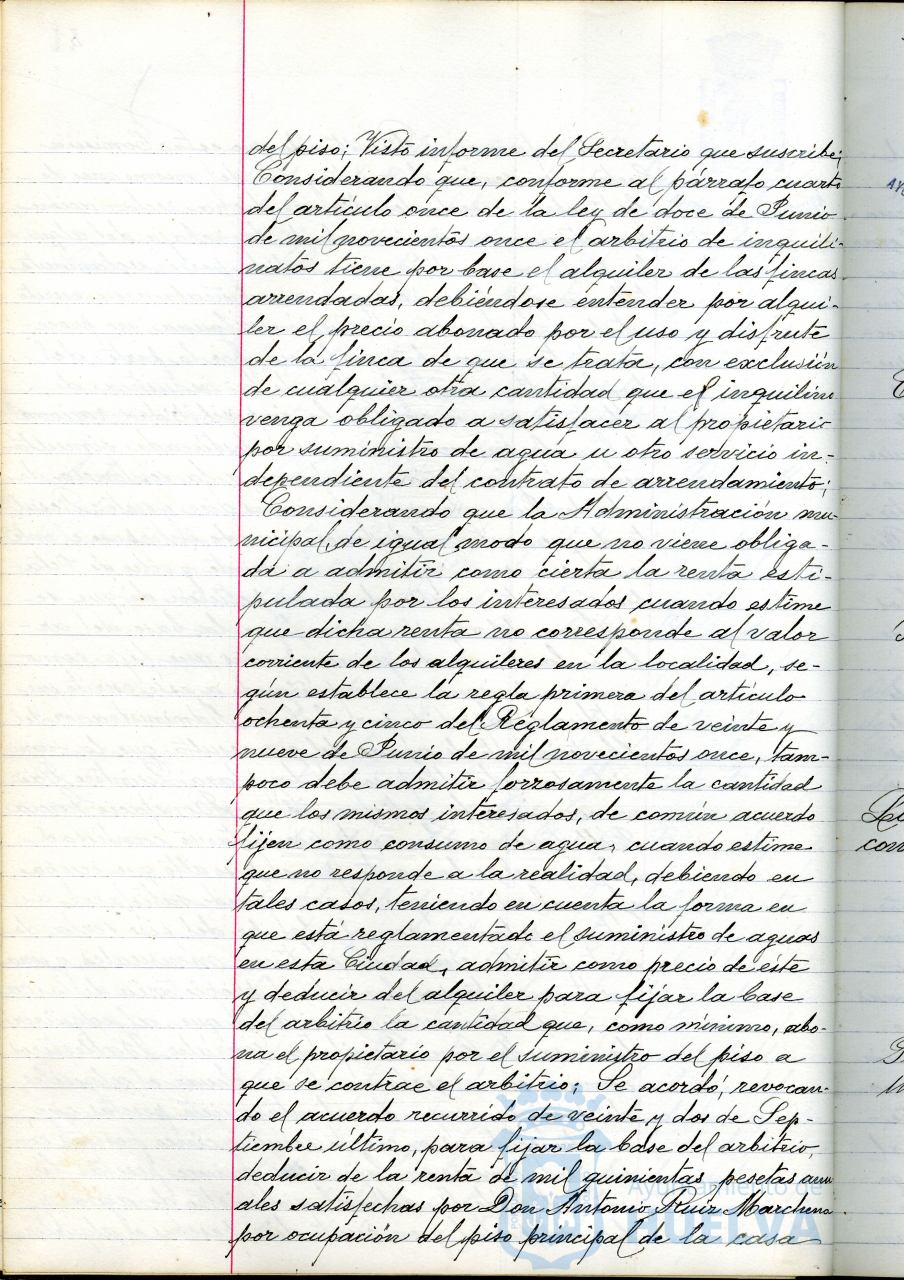 del piso; Visto informe del Secretario que suscribe;
Considerando que, conforme al párrafo cuarto
del artículo once de la ley de doce de Junio
de mil novecientos once el arbitrio de inquili-
natos tiene por base el alquiler de las fincas
arrendadas, debiéndose entender por alqui-
ler el precio abonado por el uso y disfrute
de la finca de que se trata, con exclusión
de cualquier otra cantidad que el inquilino
venga obligado a satisfacer al propietario
por suministro de agua u otro servicio in-
dependiente del contrato de arrendamiento;
Considerando que la Administración mu-
nicipal, de igual modo que no viene obliga-
da a admitir como cierta la renta esti-
pulada por los interesados cuando estime
que dicha renta no corresponde al valor
corriente de los alquileres en la localidad, se-
gún establece la regla primera del artículo
ochenta y cinco del Reglamento de veinte y
nueve de Junio de mil novecientos once, tam-
poco debe admitir forzosamente la cantidad
que los mismos interesados, de común acuerdo
fijen como consumo de agua, cuando estime
que no responde a la realidad, debiendo en
tales casos, teniendo en cuenta la forma en
que está reglamentado el suministro de aguas
en esta Ciudad, admitir como precio de éste
y deducir del alquiler para fijar la base
del arbitrio la cantidad que, como mínimo, abo-
na el propietario por el suministro del piso a
que se contrae el arbitrio; Se acordó, revocan-
do el acuerdo recurrido de veinte y dos de Sep-
tiembre último, para fijar la base del arbitrio,
deducir de la renta de mil quinientas pesetas anu
ales satisfechas por Don Antonio Ruiz Marchena
por ocupación del piso principal de la casa
Ayuntamiento de
HUELVA